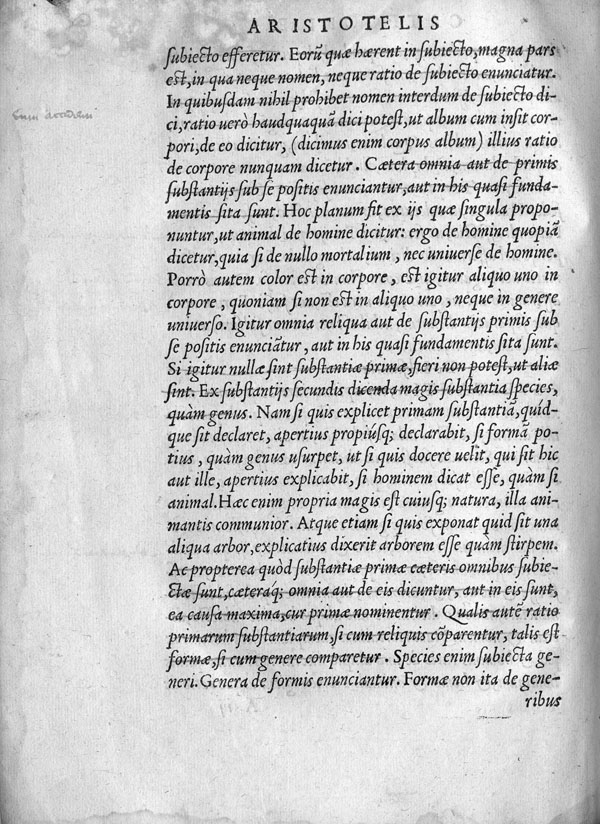 ARISTOTELIS
subiecto efferetur. Eorū quæ hærent in subiecto, magna pars
est, in qua neque nomen, neque ratio de subiecto enunciatur.
In quibusdam nihil prohibet nomen interdum de subiecto di-
ci, ratio uerò haudquaquā dici potest, ut album cum insit cor-
pori, de eo dicitur, (dicimus enim corpus album) illius ratio
de corpore nunquam dicetur. Cætera omnia aut de primis
substantijs sub se positis enunciantur, aut in his quasi funda-
mentis sita sunt. Hoc planum fit ex ijs quæ singula propo-
nuntur, ut animal de homine dicitur: ergo de homine quopiā
dicetur, quia si de nullo mortalium, nec uniuerse de homine.
Porrò autem color est in corpore, est igitur aliquo uno in
corpore, quoniam si non est in aliquo uno, neque in genere
uniuerso. Igitur omnia reliqua aut de substantijs primis sub
se positis enunciātur, aut in his quasi fundamentis sita sunt.
Si igitur nullæ sint substantiæ primæ, fieri non potest, ut aliæ
sint. Ex substantijs secundis dicenda magis substantia species,
quàm genus. Nam si quis explicet primam substantiā, quíd-
que sit declaret, apertius propiúsq; declarabit, si formā po-
tius, quàm genus usurpet, ut si quis docere uelit, qui sit hic
aut ille, apertius explicabit, si hominem dicat esse, quàm si
animal. Hæc enim propria magis est cuiusq; natura, illa ani-
mantis communior. Atque etiam si quis exponat quid sit una
aliqua arbor, explicatius dixerit arborem esse quàm stirpem.
Ac propterea quòd substantiæ primæ cæteris omnibus subie-
ctæ sunt, cæteráq; omnia aut de eis dicuntur, aut in eis sunt,
ea causa maxima, cur primæ nominentur. Qualis autē ratio
primarum substantiarum, si cum reliquis cōparentur, talis est
formæ, si cum genere comparetur. Species enim subiecta ge-
neri. Genera de formis enunciantur. Formæ non ita de gene-
ribus